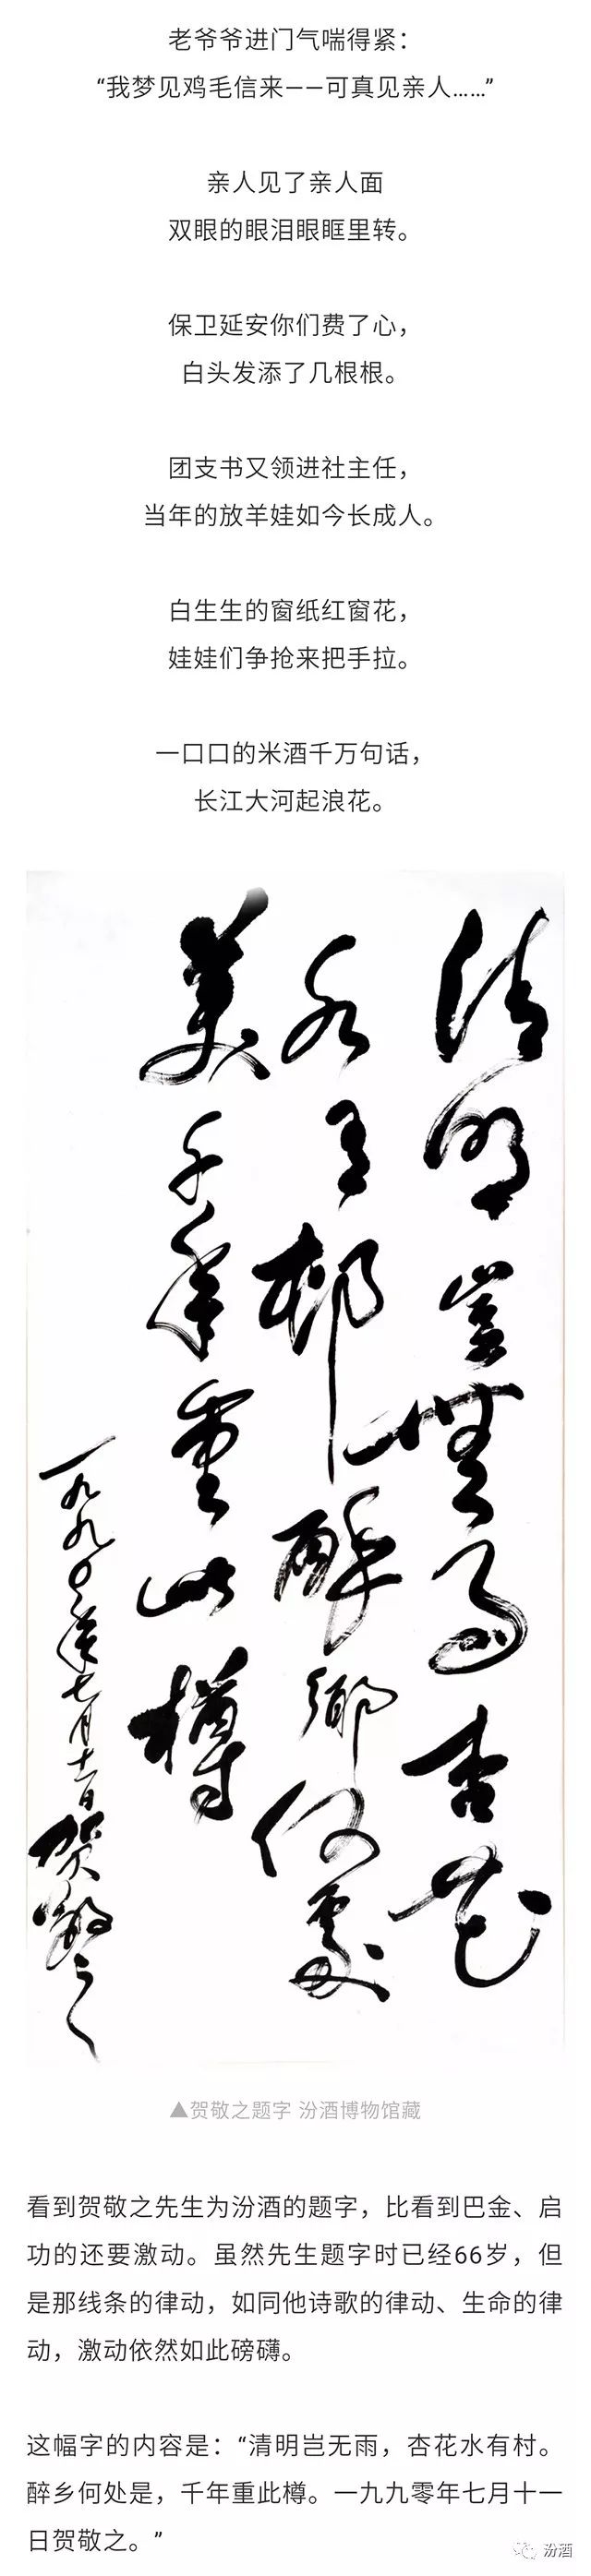 老爷爷进门气喘得紧：
“我梦见鸡毛信来——可真见亲人……”
亲人见了亲人面
双眼的眼泪眼眶里转。
保卫延安你们费了心，
白头发添了几根根。
团支书又领进社主任，
当年的放羊娃如今长成人。
白生生的窗纸红窗花，
娃娃们争抢来把手拉。
一口口的米酒千万句话，
长江大河起浪花。
清明豈無雨杏花
水有邨醉鄉何處
美千年重此樽
一九九〇年七月十一日贺敬之
▲贺敬之题字 汾酒博物馆藏
看到贺敬之先生为汾酒的题字，比看到巴金、启
功的还要激动。虽然先生题字时已经66岁，但
是那线条的律动，如同他诗歌的律动、生命的律
动，激动依然如此磅礴。
这幅字的内容是：“清明岂无雨，杏花水有村。
醉乡何处是，千年重此樽。一九九零年七月十一
日贺敬之。”
汾酒